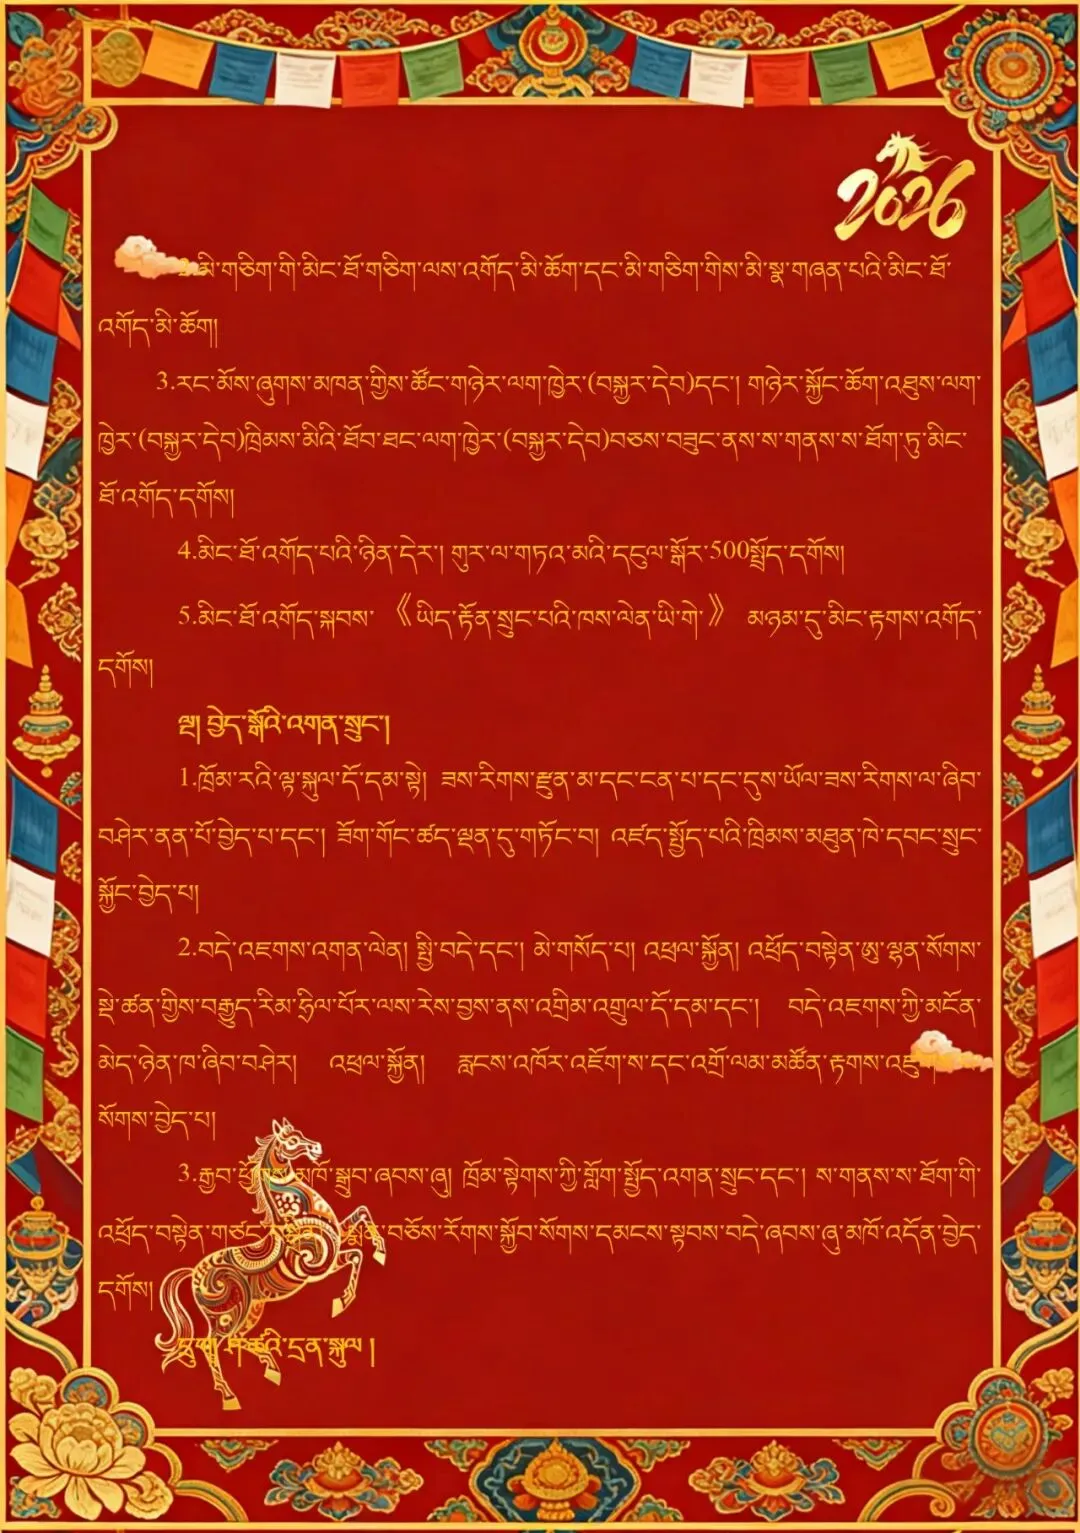 2026
2.མི་གཅིག་གི་མིང་ཐོ་གཅིག་ལས་འགོད་མི་ཆོག་དང་མི་གཅིག་གིས་མི་སྣ་གཞན་པའི་མིང་ཐོ་
འགོད་མི་ཆོག།
3.རང་མོས་ཞུགས་མཁན་གྱིས་ཚོང་གཉེར་ལག་ཁྱེར་(བསྐྱར་དེབ)དང་། གཉེར་སྐྱོང་ཆོག་འཐུས་ལག་
ཁྱེར་(བསྐྱར་དེབ)ཁྲིམས་མིའི་ཐོབ་ཐང་ལག་ཁྱེར་(བསྐྱར་དེབ)བཅས་བཟུང་ནས་ས་གནས་ས་ཐོག་ཏུ་མིང་
ཐོ་འགོད་དགོས།
4.མིང་ཐོ་འགོད་པའི་ཉིན་དེར་། གུར་ལ་གཏའ་མའི་དངུལ་སྒོར་500སྤྲོད་དགོས།
5.མིང་ཐོ་འགོད་སྐབས་ 《ཡིད་རྟོན་སྲུང་པའི་ཁས་ལེན་ཡི་གེ་》 མཉམ་དུ་མིང་རྟགས་འགོད་
དགོས།
ལྔ། བྱེད་སྒོའི་འགན་སྲུང་།
1.ཁྲོམ་རའི་ལྟ་སྐུལ་དོ་དམ་སྟེ། ཟས་རིགས་རྫུན་མ་དང་ངན་པ་དང་དུས་ཡོལ་ཟས་རིགས་ལ་ཞིབ་
བཤེར་ནན་པོ་བྱེད་པ་དང་། ཟོག་གོང་ཚད་ལྡན་དུ་གཏོང་བ། འཛད་སྤྱོད་པའི་ཁྲིམས་མཐུན་ཁེ་དབང་སྲུང་
སྐྱོང་བྱེད་པ།
2.བདེ་འཇགས་འགན་ལེན། སྤྱི་བདེ་དང་། མེ་གསོད་པ། འཕྲལ་སྐྱོན། འཕྲོད་བསྟེན་ཨུ་ལྷན་སོགས་
སྡེ་ཚན་གྱིས་བརྒྱུད་རིམ་ཧྲིལ་པོར་ལས་རེས་བྱས་ནས་འགྲིམ་འགྲུལ་དོ་དམ་དང་། བདེ་འཇགས་ཀྱི་མངོན་
མེད་ཉེན་ཁ་ཞིབ་བཤེར། འཕྲལ་སྐྱོན། རླངས་འཁོར་འཇོག་ས་དང་འགྲོ་ལམ་མཚོན་རྟགས་
སོགས་བྱེད་པ།
3.རྒྱབ་ཕྱོགས་མཁོ་སྒྲུབ་ཞབས་ཞུ། ཁྲོམ་སྟེགས་ཀྱི་གློག་སྤྱོད་འགན་སྲུང་དང་། ས་གནས་ས་ཐོག་གི་
འཕྲོད་བསྟེན་གཙང་ བཅོས་རོགས་སྐྱོབ་སོགས་དམངས་སྟབས་བདེ་ཞབས་ཞུ་མཁོ་འདོན་བྱེད་
དགོས།
དྲུག གཙོ་ཚེའི་དྲན་སྐུལ །